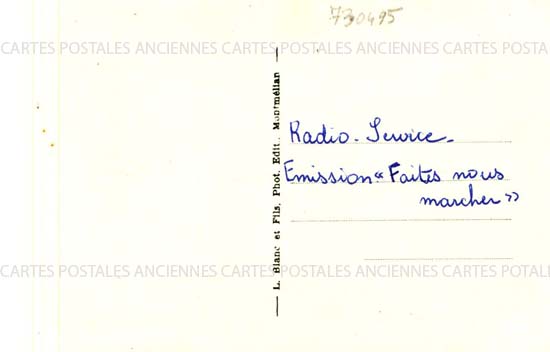 730495
CARTES POSTALES ANCIENNES CARTES POSTALES ANCIENNES CARTES POSTALES
L. Blanc et Fils, Phot. Edit., Montmélian
Radio-Service-
Emission « Faites nous
marcher »
CARTES POSTALES ANCIENNES CARTES POSTALES ANCIENNES CARTES POTALES